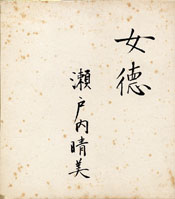 女徳
瀬戸内晴美